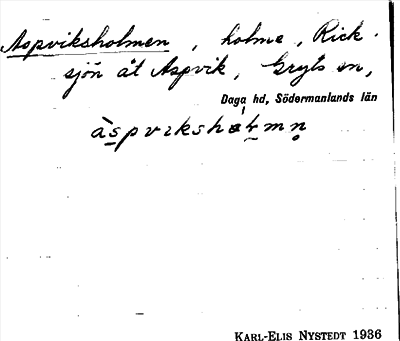 Aspviksholmen, holme, Rick-
sjön åt Aspvik, Gryts sn,
Daga hd, Södermanlands län
KARL-ELIS NYSTEDT 1936